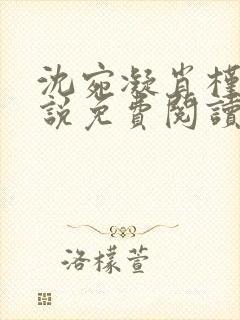 沈宛凝肖槿
說免費閱讀
洛檬萱